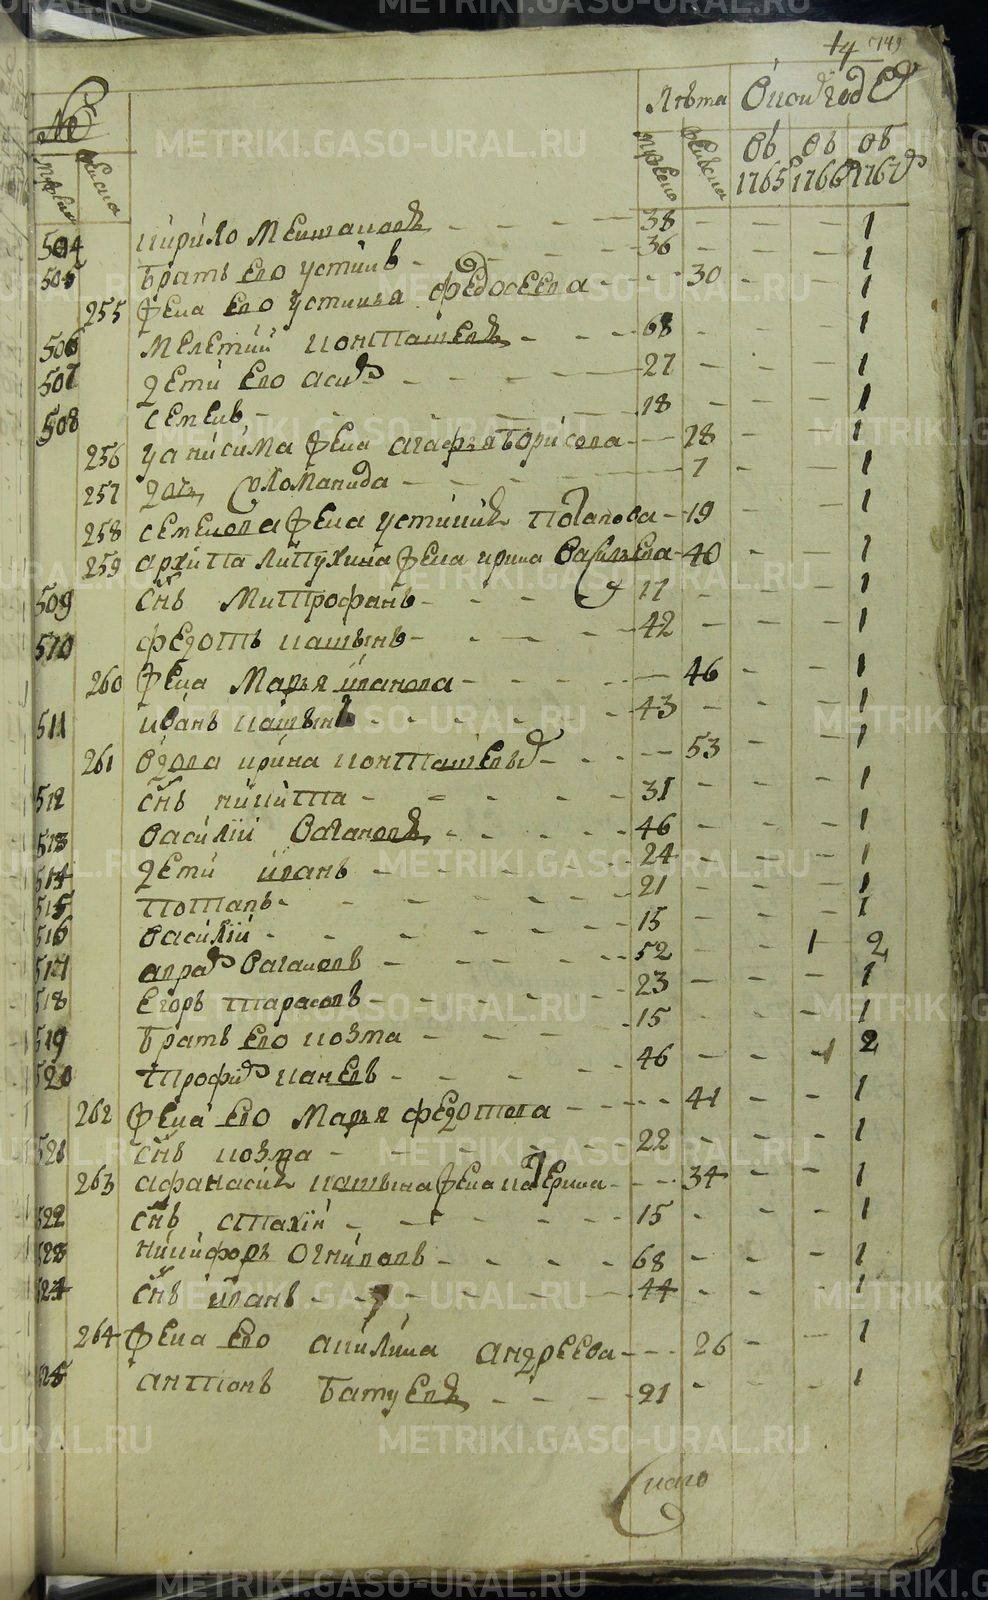 14 749
№ Лѣта О коиⷯ годеⷯ
мужеска женска мужеска женска Въ Въ Въ
1765 1766 1767
504 кирило Меншакоⷡ 38 1
505 братъ ево устинъ 36 1
255 жена ево устинья федосеева 30 1
506 мелетий конташеⷡ 68 1
507 дети ево аси 27 1
508 семенъ 18 1
256 у анисима жена агафья борисова 28 1
257 дочь Соломанида 7 1
258 семенова жена устиния потапова 19 1
259 архипа липухина жена ирина Васильева 40 1
509 Снъ Митрофанъ 17 1
510 федотъ кашинъ 42 1
260 жена Марья иванова 46 1
511 иванъ кашинъ 43 1
261 вдова ирина конташевы 53 1
512 Снъ никита 31 1
513 василии Вагановъ 46 1
514 дети иванъ 24 1
515 потапъ 21 1
516 василий 15 1
517 авраⷨ Вагановъ 52 1 2
518 егоръ тарасовъ 23 1
519 братъ ево козма 15 1
520 трофиⷨ каневъ 46 1 2
262 жена ево Марья федотова 41 1
521 Снъ козма 22 1
263 афанасия кашина жена катерина 34 1
522 Снъ стахий 15 1
523 никифоръ огнивовъ 68 1
524 Снъ иванъ 44 1
264 жена ево акилина андреева 26 1
525 антонъ батуевъ 21 1